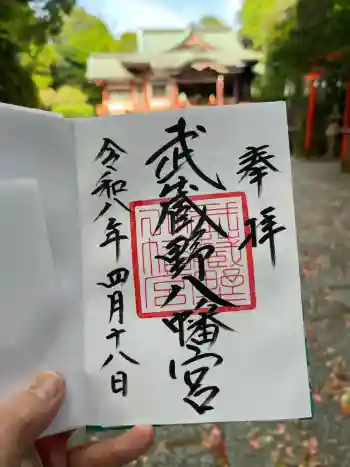 奉拝
武蔵野八幡宮
令和八年四月十八日